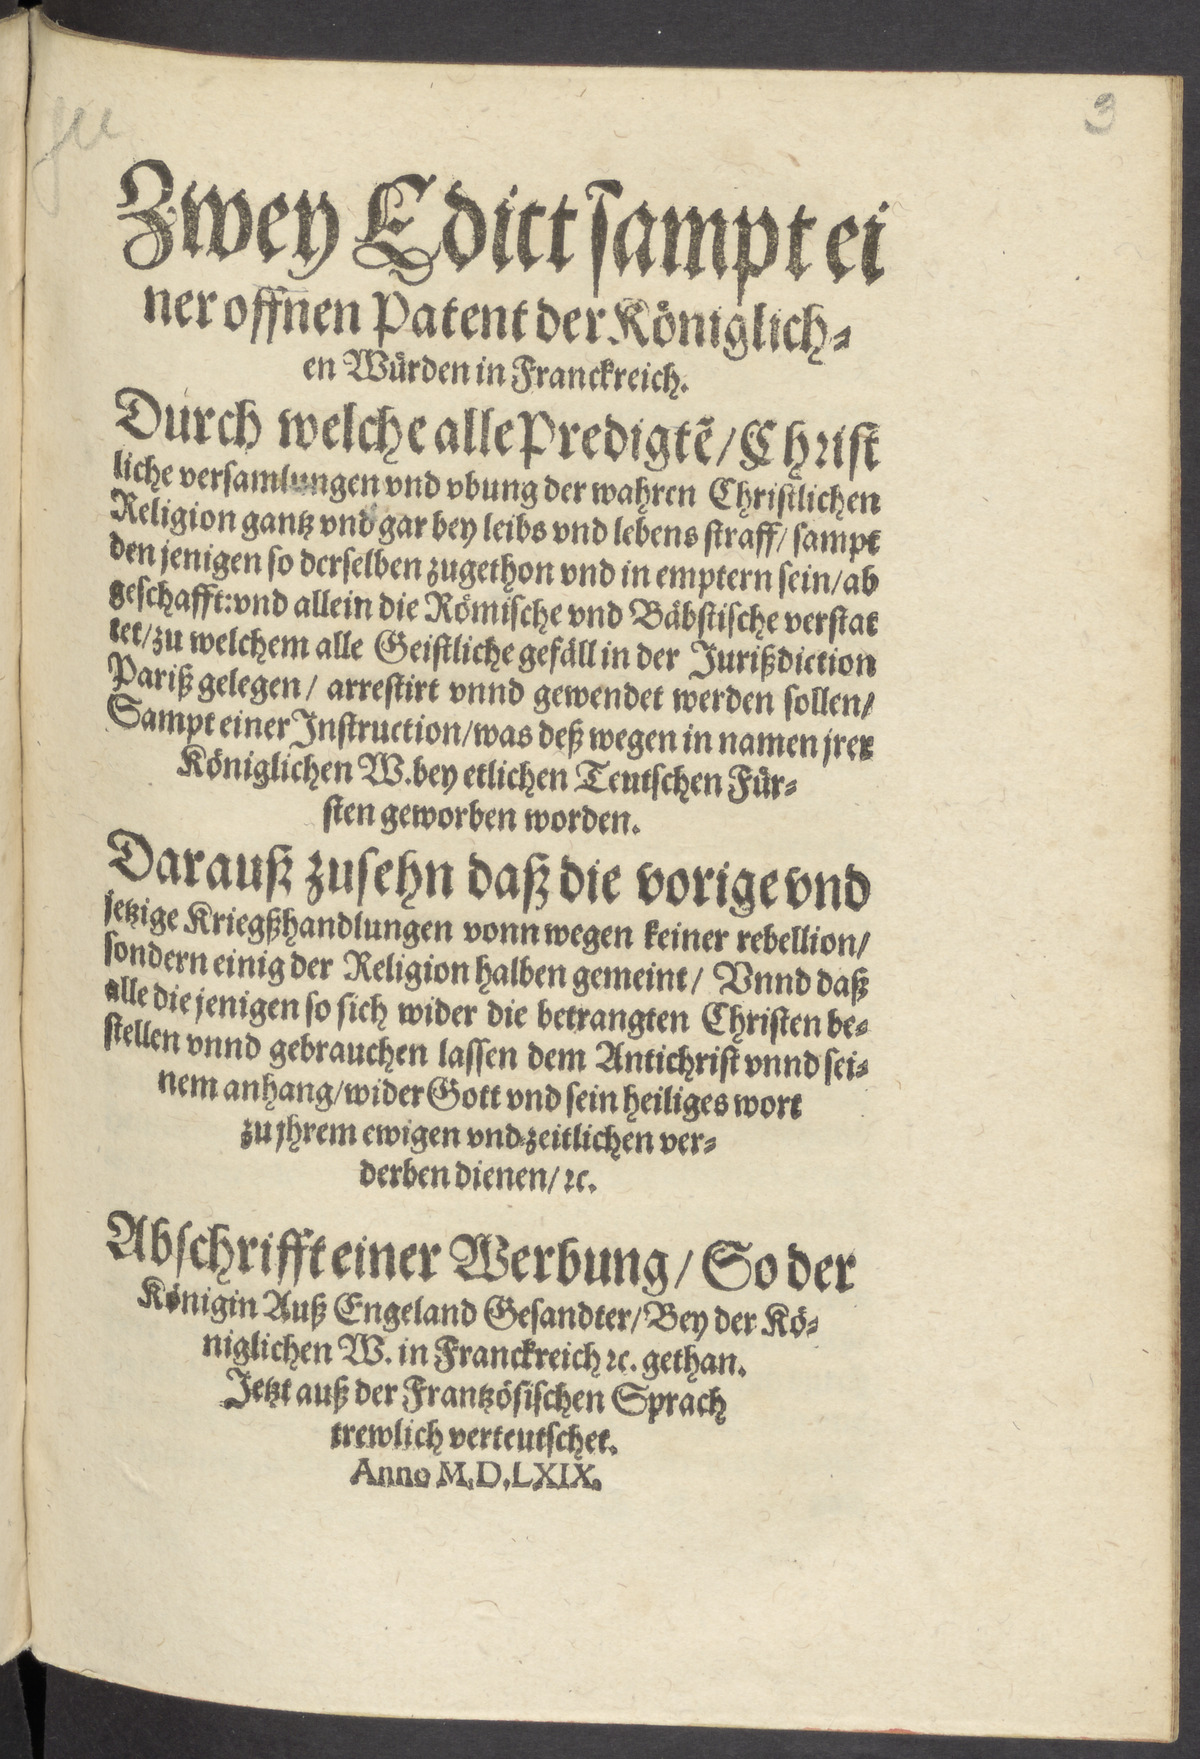 3
Zwey Edict sampt ei
ner offnen Patent der Königlich⸗
en Wůrden in Franckreich.
Durch welche alle Predigtẽ/ Christ
liche versamlungen vnd vbung der wahren Christlichen
Religion gantz vnd gar bey leibs vnd lebens straff/ sampt
den jenigen so derselben zugethon vnd in emptern sein/ ab
geschafft: vnd allein die Römische vnd Bäbstische verstat
tet/ zu welchem alle Geistliche gefäll in der Jurißdiction
Pariß gelegen/ arrestirt vnnd gewendet werden sollen/
Sampt einer Instruction/ was deß wegen in namen jrer
Königlichen W. bey etlichen Teutschen Fůr⸗
sten geworben worden.
Darauß zusehn daß die vorige vnd
jetzige Kriegßhandlungen vonn wegen keiner rebellion/
sondern einig der Religion halben gemeint/ Vnnd daß
alle die jenigen so sich wider die betrangten Christen be⸗
stellen vnnd gebrauchen lassen dem Antichrist vnnd sei⸗
nem anhang/ wider Gott vnd sein heiliges wort
zu jhrem ewigen vnd zeitlichen ver⸗
derben dienen/ ꝛc.
Abschrifft einer Werbung/ So der
Königin Auß Engeland Gesandter/ Bey der Kö⸗
niglichen W. in Franckreich ꝛc. gethan.
Jetzt auß der Frantzösischen Sprach
trewlich verteutschet.
Anno M.D.LXIX.